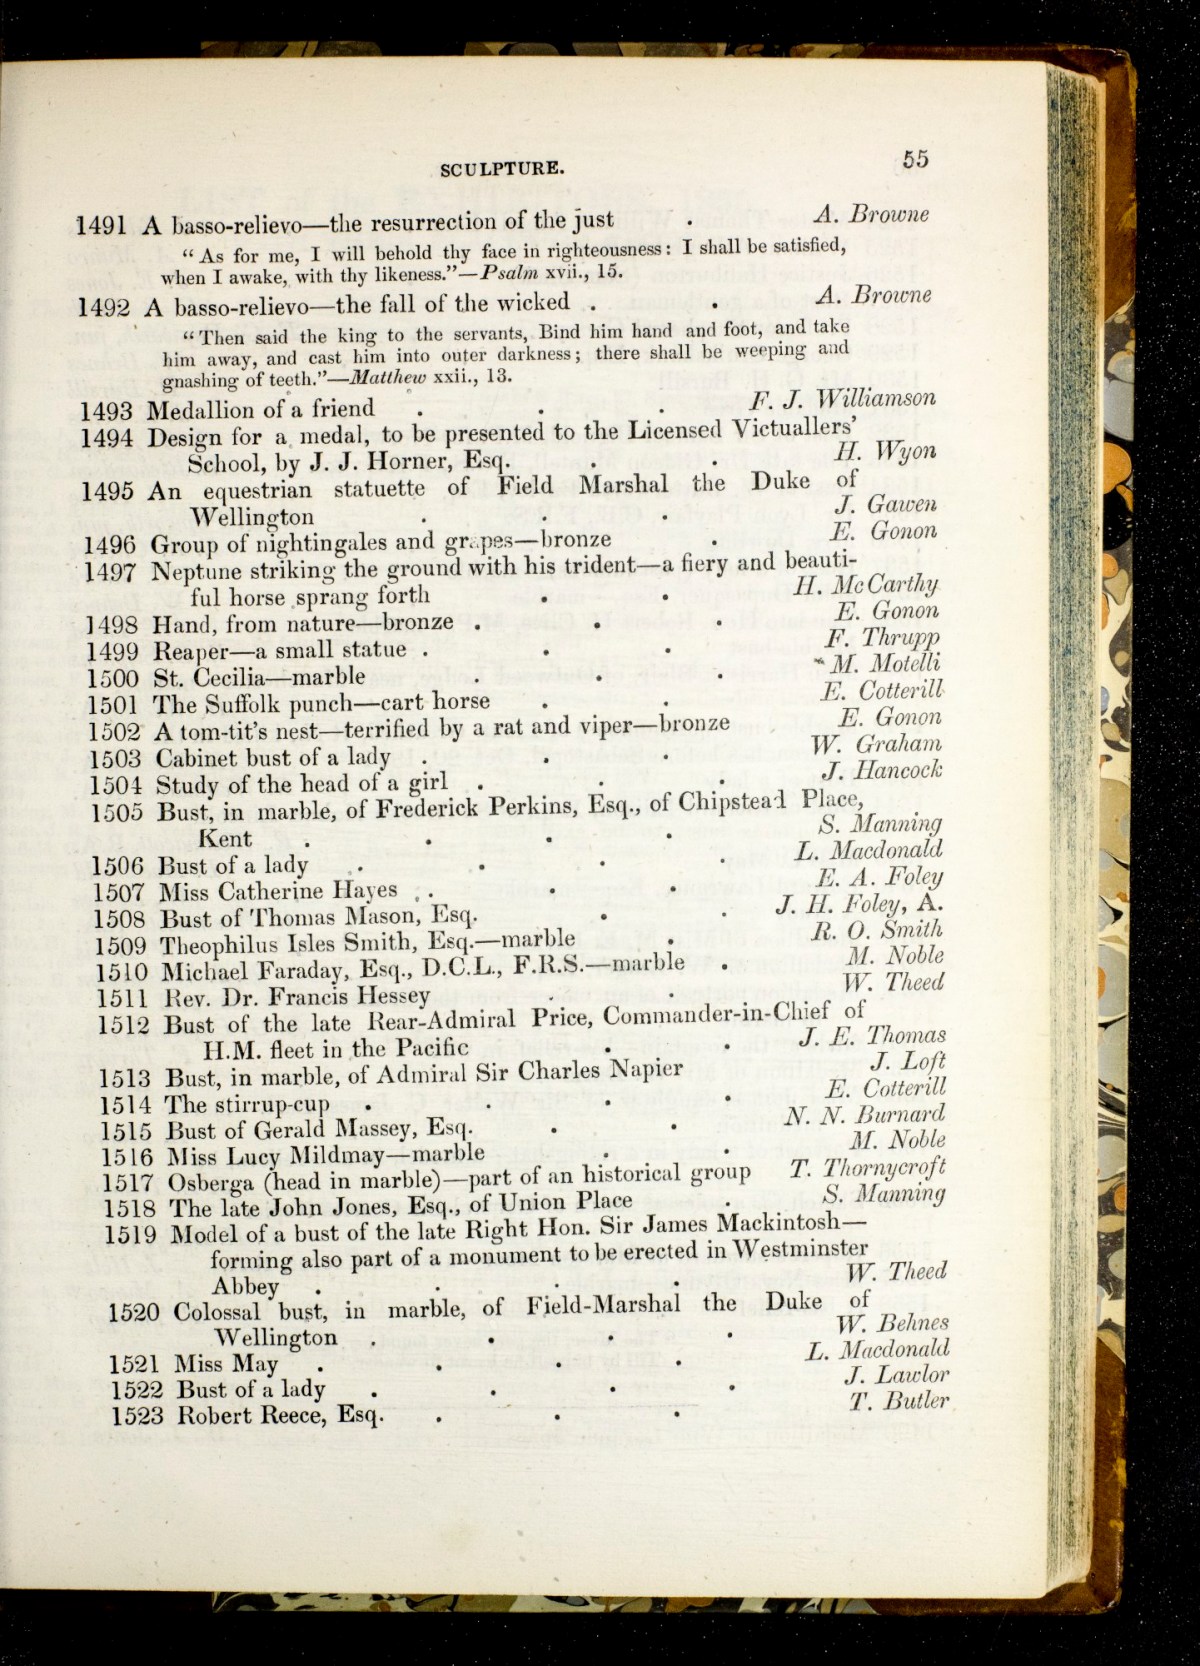 SCULPTURE. 55
1491 A basso-relievo—the resurrection of the just . A. Browne
“As for me, I will behold thy face in righteousness: I shall be satisfied,
when I awake, with thy likeness.”—Psalm xvii., 15.
1492 A basso-relievo—the fall of the wicked . . A. Browne
“Then said the king to the servants, Bind him hand and foot, and take
him away, and cast him into outer darkness; there shall be weeping and
gnashing of teeth.”—Matthew xxii., 13.
1493 Medallion of a friend . . . F. J. Williamson
1494 Design for a medal, to be presented to the Licensed Victuallers’
School, by J. J. Horner, Esq. . . H. Wyon
1495 An equestrian statuette of Field Marshal the Duke of
Wellington . . . J. Gawen
1496 Group of nightingales and grapes—bronze . E. Gonon
1497 Neptune striking the ground with his trident—a fiery and beauti-
ful horse sprang forth . . H. McCarthy
1498 Hand, from nature—bronze . . . E. Gonon
1499 Reaper—a small statue . . . F. Thrupp
1500 St. Cecilia—marble . . . M. Motelli
1501 The Suffolk punch—cart horse . . E. Cotterill
1502 A tom-tit’s nest—terrified by a rat and viper—bronze E. Gonon
1503 Cabinet bust of a lady . . . W. Graham
1504 Study of the head of a girl . . . J. Hancock
1505 Bust, in marble, of Frederick Perkins, Esq., of Chipstead Place,
Kent . . . . S. Manning
1506 Bust of a lady . . . . L. Macdonald
1507 Miss Catherine Hayes . . . E. A. Foley
1508 Bust of Thomas Mason, Esq. . . J. H. Foley, A.
1509 Theophilus Isles Smith, Esq.—marble . R. O. Smith
1510 Michael Faraday, Esq., D.C.L., F.R.S.—marble . M. Noble
1511 Rev. Dr. Francis Hessey . . . W. Theed
1512 Bust of the late Rear-Admiral Price, Commander-in-Chief of
H.M. fleet in the Pacific . . J. E. Thomas
1513 Bust, in marble, of Admiral Sir Charles Napier J. Loft
1514 The stirrup-cup . . . . E. Cotterill
1515 Bust of Gerald Massey, Esq. . . N. N. Burnard
1516 Miss Lucy Mildmay—marble . . M. Noble
1517 Osberga (head in marble)—part of an historical group T. Thornycroft
1518 The late John Jones, Esq., of Union Place . S. Manning
1519 Model of a bust of the late Right Hon. Sir James Mackintosh—
forming also part of a monument to be erected in Westminster
Abbey . . . . W. Theed
1520 Colossal bust, in marble, of Field-Marshal the Duke of
Wellington . . . . W. Behnes
1521 Miss May . . . . L. Macdonald
1522 Bust of a lady . . . . J. Lawlor
1523 Robert Reece, Esq. . . . T. Butler